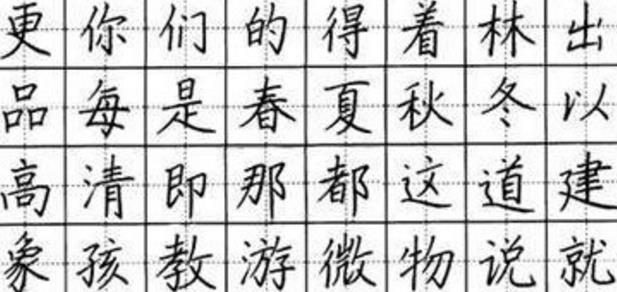 更你们的得着林出
品每是春夏秋冬以
高清即那都这道建
象孩教游微物说就